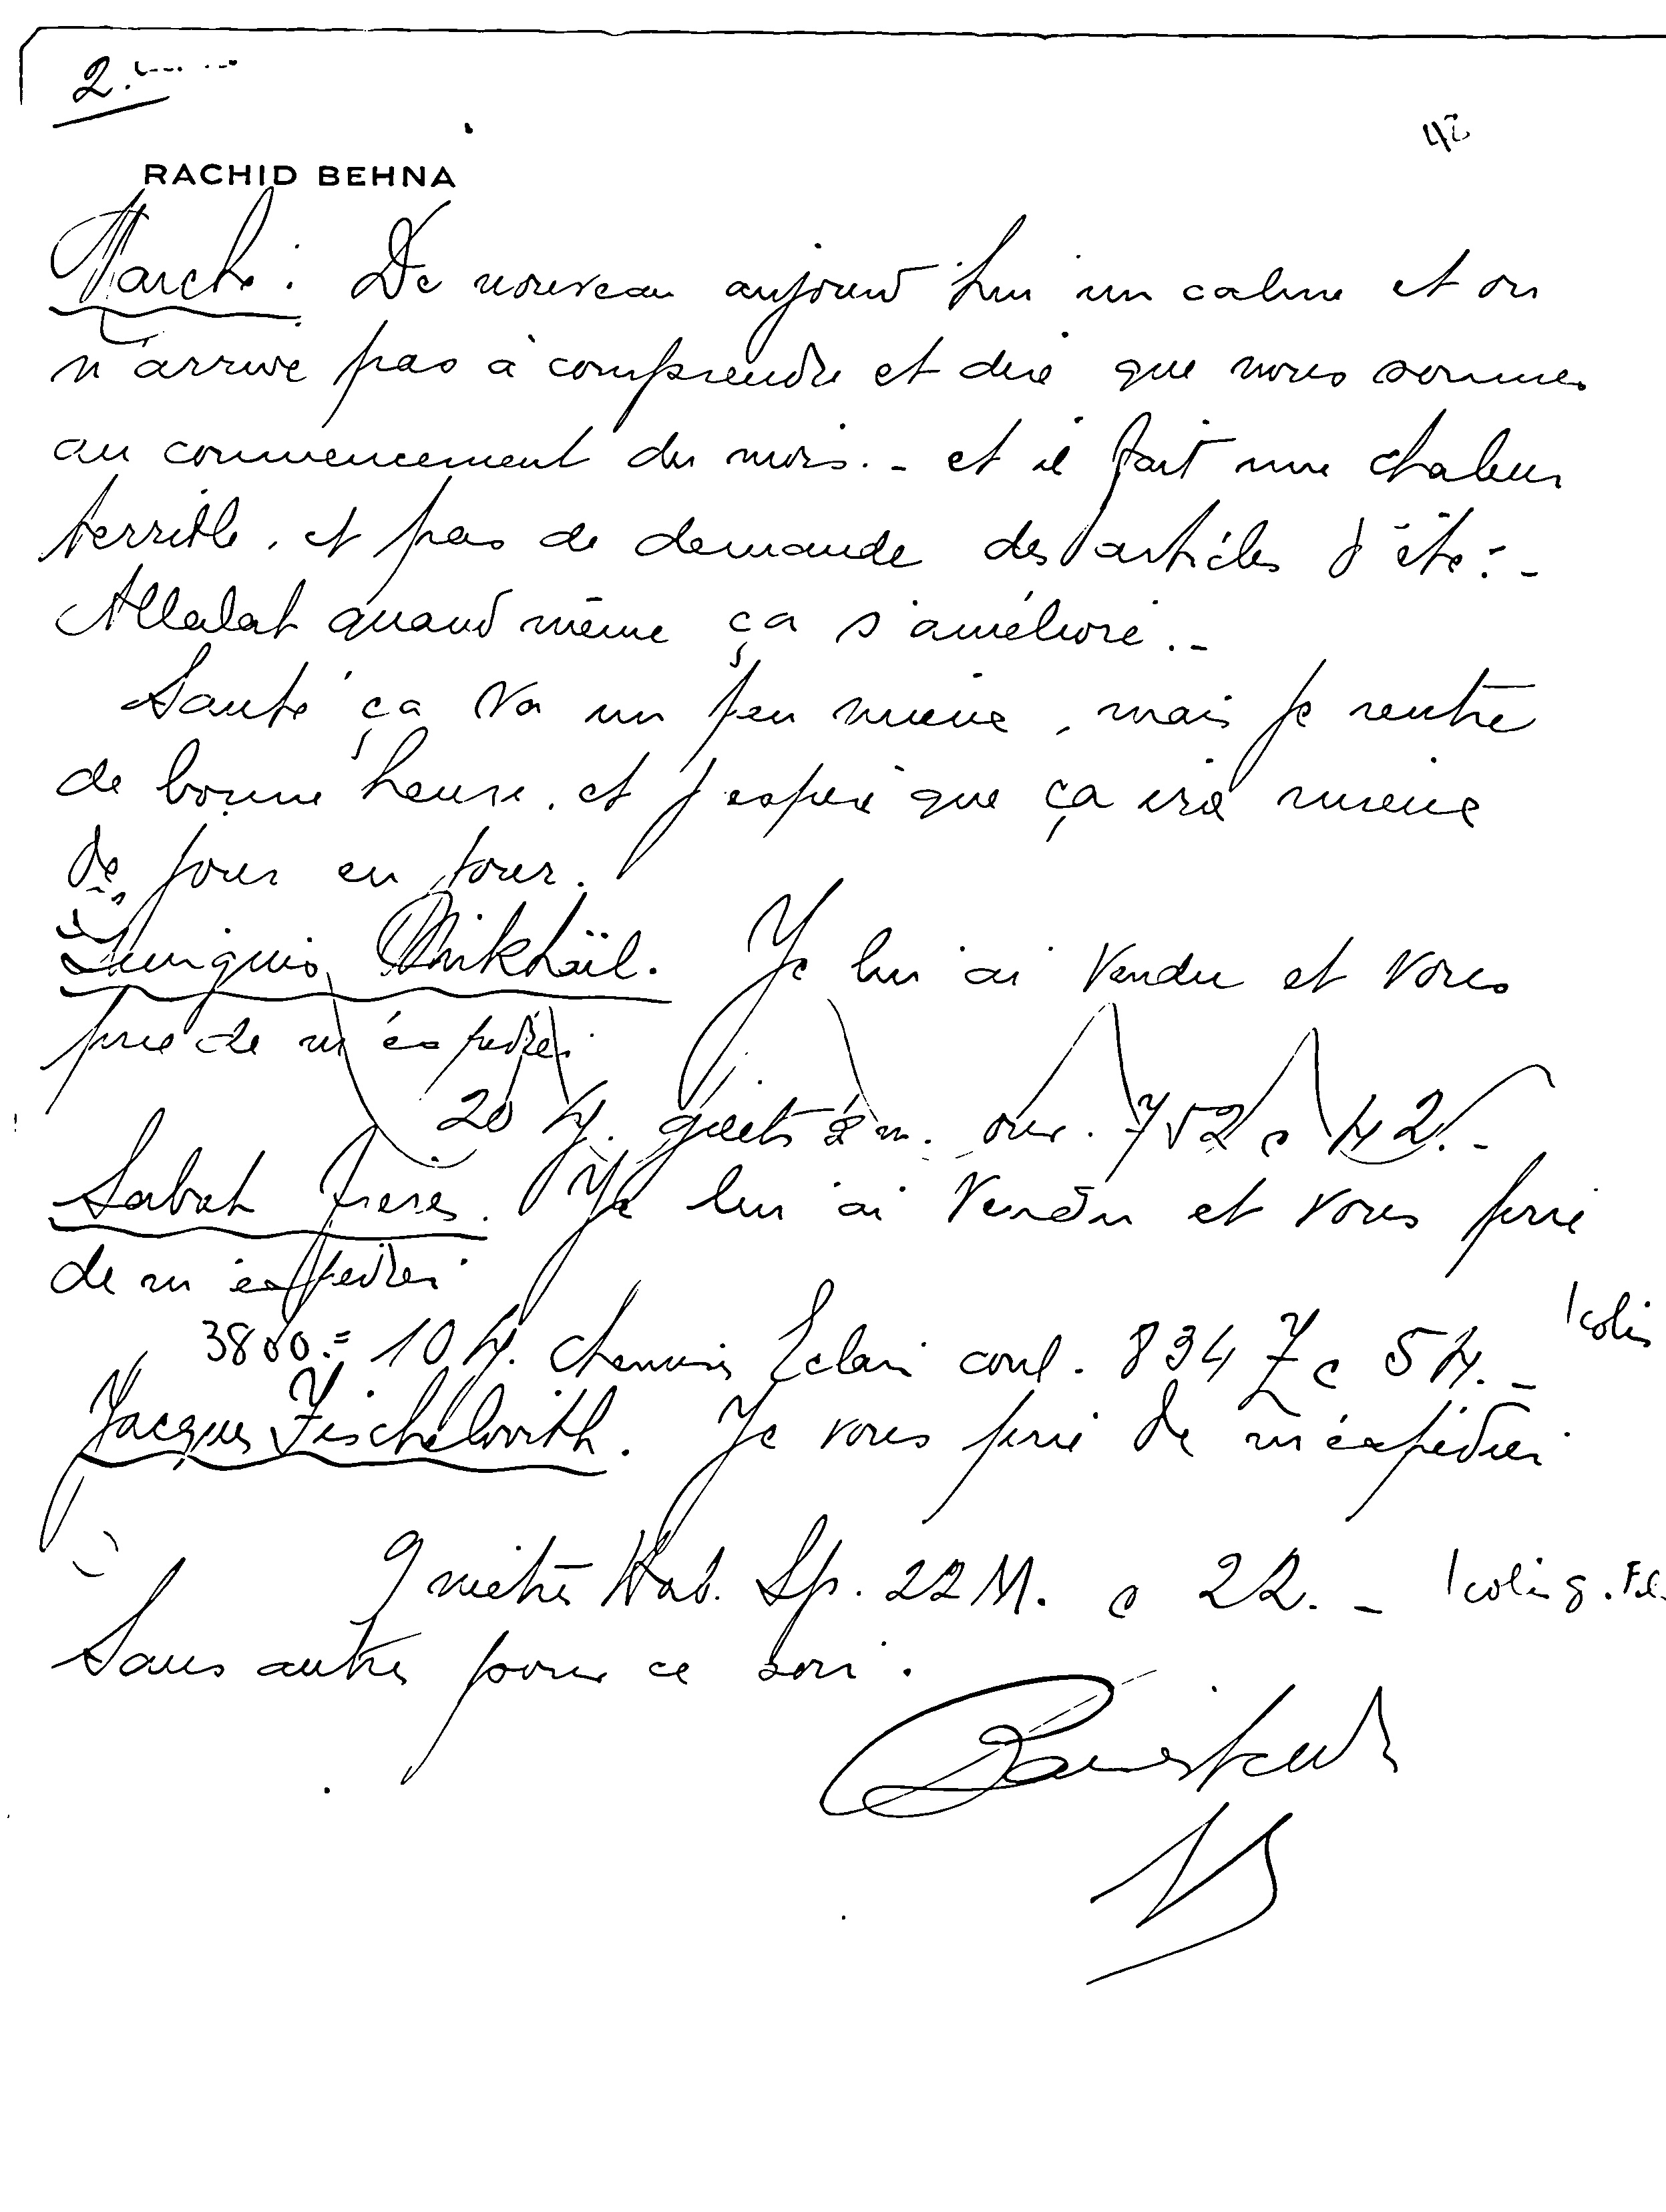 2.
42
RACHID BEHNA
Marché : De nouveau aujourd'hui un calme et on
n'arrive pas à comprendre et dire que nous sommes
au commencement du mois. - et il fait une chaleur
terrible, et pas de demande des articles d'été. -
Allalat quand même ça s'améliore. -
Santé ça va un peu mieux, mais je rentre
de bonne heure, et j'espère que ça ira mieux
de jour en jour.
Mikhaïl. Je lui ai vendu et vous
prie de m'expédier
20 gilets 2 m. our. 752 c 42. -
Sabat Frères. Je lui ai vendu et vous prie
de m'expédier
3800.= 10 chemises Eclair coul. 8347 c 54. - 1 colis
Jacques Fischelovith. Je vous prie de m'expédier
9 mètres Hab. Sp. 22 M. c 22. - 1 colis
Sans autres pour ce soir.